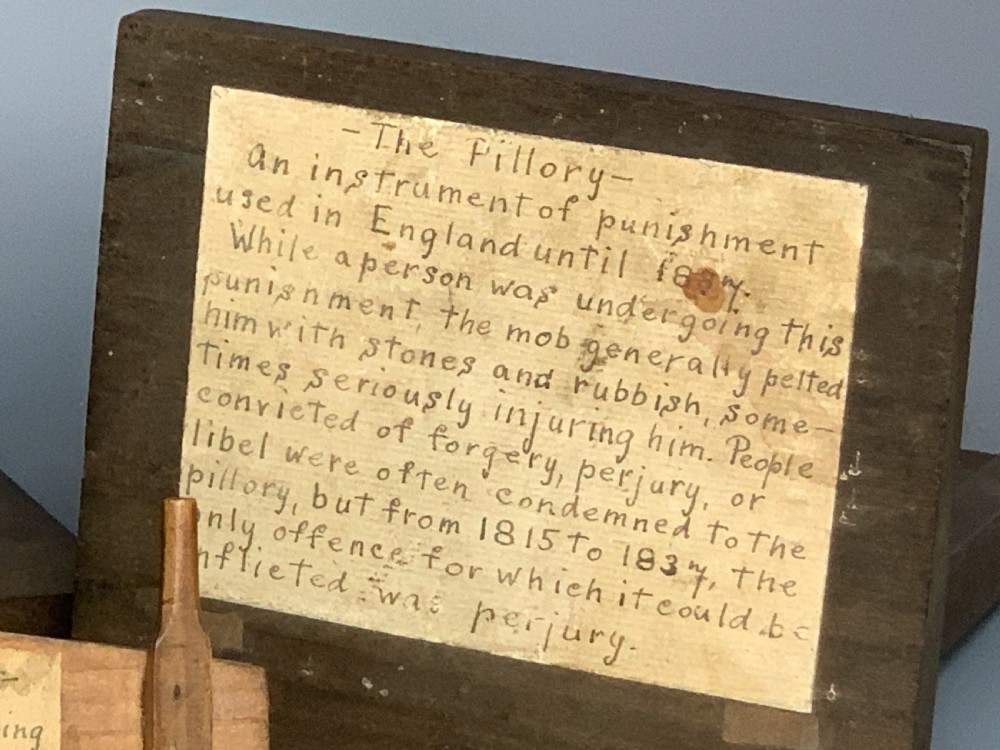 -The Pillory-
an instrument of punishment
used in England until 1837.
While a person was undergoing this
punishment, the mob generally pelted
him with stones and rubbish, some-
times seriously injuring him. People
convicted of forgery, perjury, or
libel were often condemned to the
pillory, but from 1815 to 1837, the
only offence for which it could be
inflicted was perjury.
-
ing